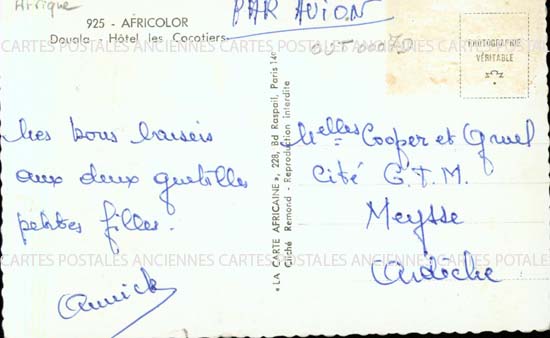 Afrique
925 - AFRICOLOR
Douala - Hôtel les Cocotiers
PAR AVION
PHOTOGRAPHIE
VÉRITABLE
CARTES POSTALES ANCIENNES CARTES POSTALES ANCIENNES CARTES POSTALES
Mes bons baisers
aux deux
petites filles.
Annick
« LA CARTE AFRICAINE », 228, Bd Raspail, Paris 14e
Cliché Remond - Reproduction interdite
Melles Cooper et Gruel
Cité G.T.M.
Meysse
Ardèche